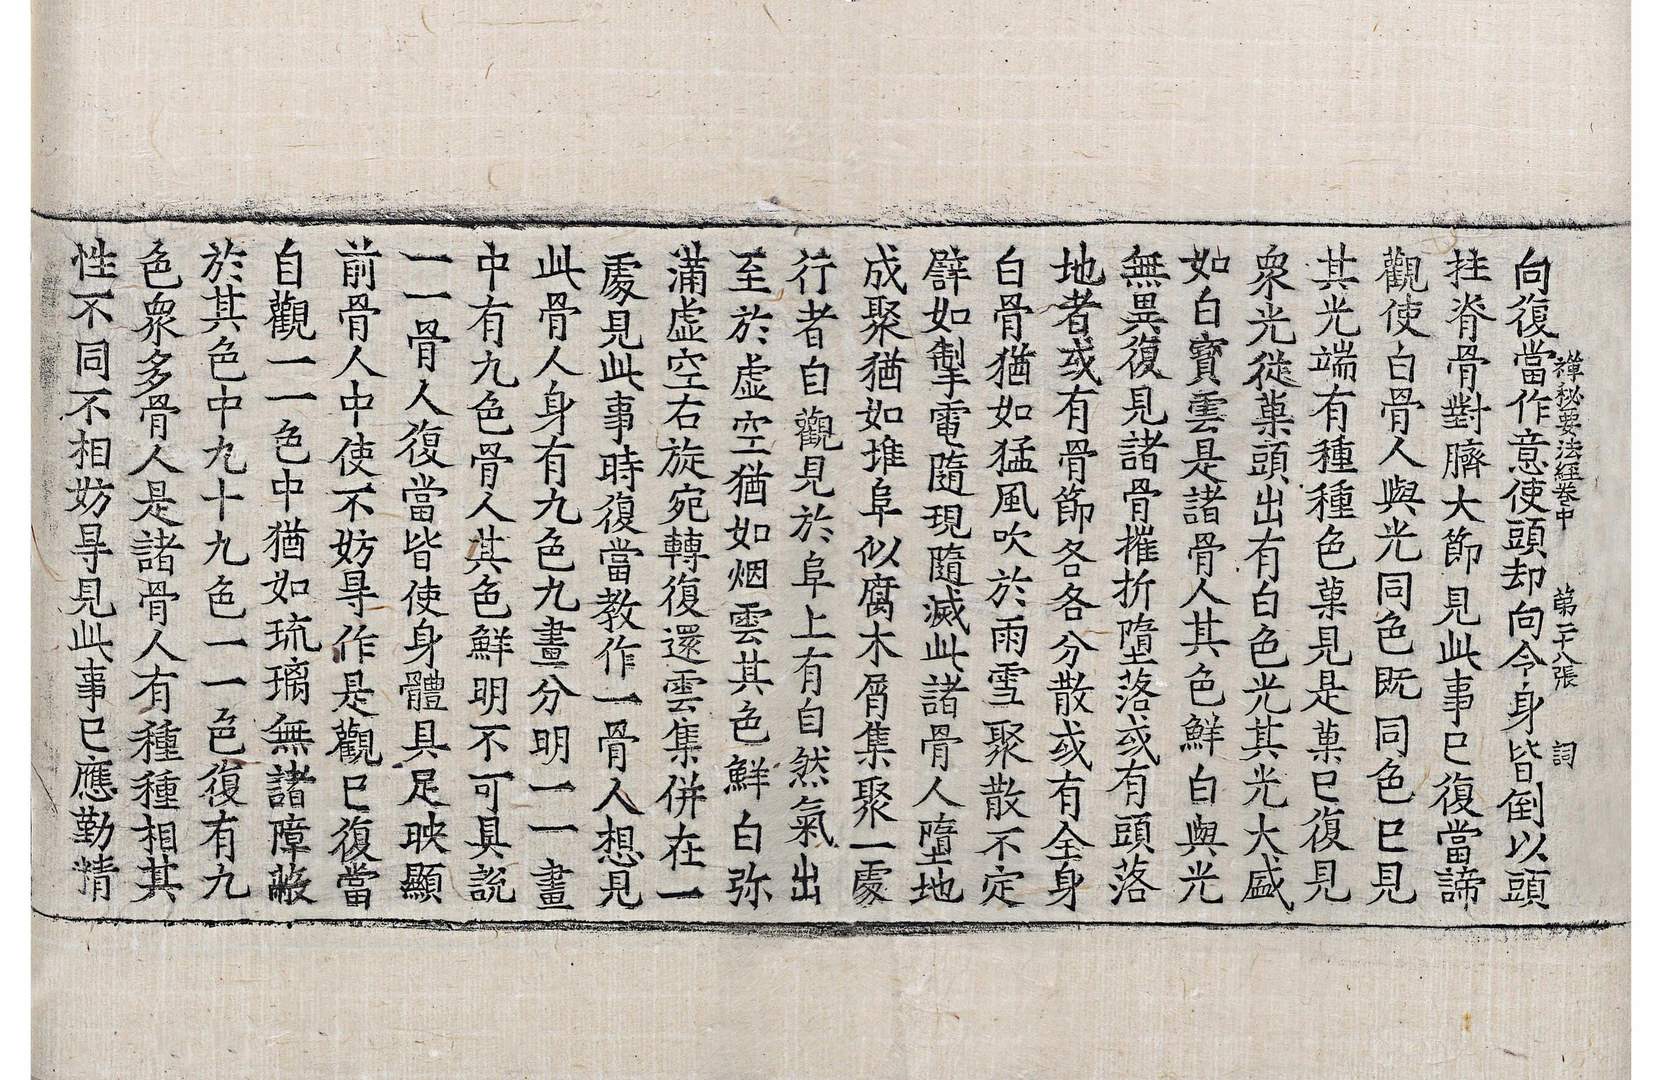 禪秘要法經卷中 第二十八張 詞
向復當作意使頭却向令身皆倒以頭
拄脊骨對臍大節見此事已復當諦
觀使白骨人與光同色旣同色已見
其光端有種種色菓見是菓已復見
衆光從菓頭出有白色光其光大盛
如白寶雲是諸骨人其色鮮白與光
無異復見諸骨摧折墮落或有頭落
地者或有骨節各各分散或有全身
白骨猶如猛風吹於雨雪聚散不定
譬如掣電隨現隨滅此諸骨人墮地
成聚猶如堆阜似腐木屑集聚一處
行者自觀見於阜上有自然氣出
至於虛空猶如烟雲其色鮮白弥
滿虛空右旋宛轉復還雲集併在一
處見此事時復當教作一骨人想見
此骨人身有九色九畫分明一一畫
中有九色骨人其色鮮明不可具說
一一骨人復當皆使身體具足映顯
前骨人中使不妨㝵作是觀已復當
自觀一一色中猶如琉璃無諸障蔽
於其色中九十九色一一色復有九
色衆多骨人是諸骨人有種種相其
性不同不相妨㝵見此事已應勤精